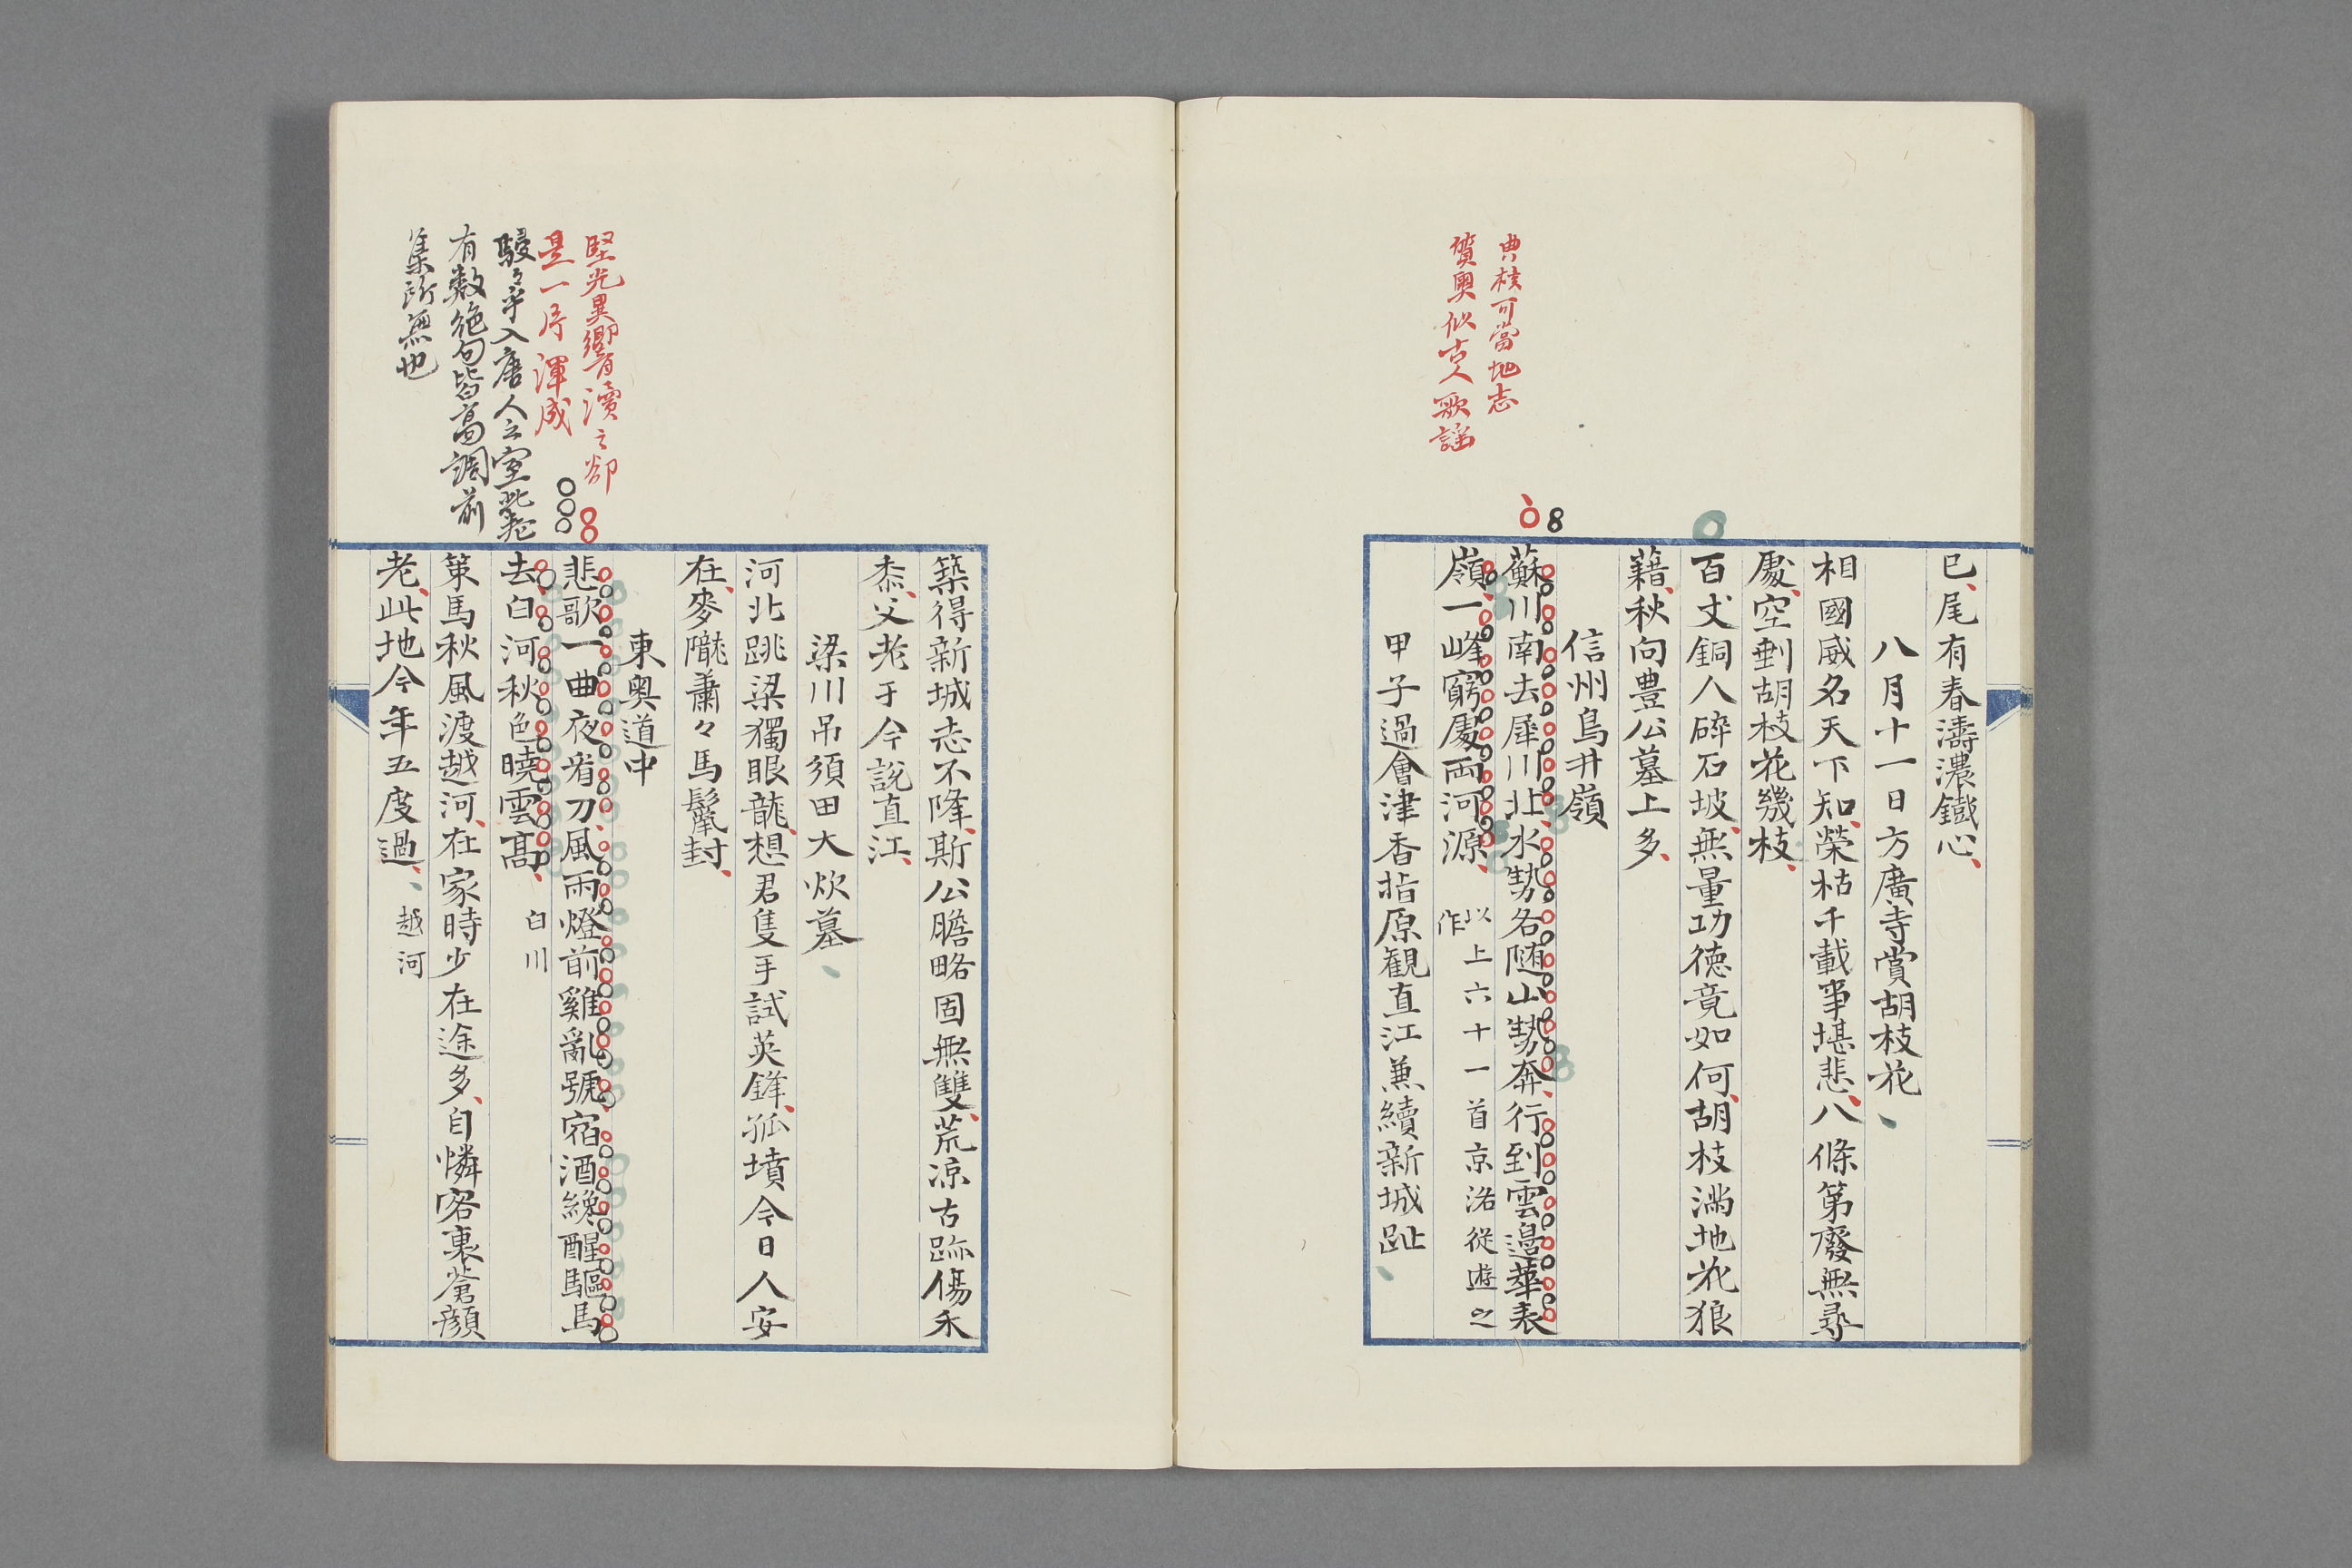 典核可當地志
質奥似古人歌謡
已尾有春濤濃鐵心
八月十一日方廣寺賞胡枝花
相國威名天下知榮枯千載事堪悲八條第廢無尋
處空剰胡枝花幾枝
百丈銅人碎石坡無量功徳竟如何胡枝満地花狼
藉秋向豊公墓上多
信州鳥井嶺
蘇川南去犀川北水勢各随山勢奔行到雲邉華表
嶺一峰窮處両河源
以上六十一首京洛従遊之
作
甲子過會津香指原観直江兼續新城趾
堅光異響讀之卻
是一片渾成
駸々乎入唐人之室此卷
有數絶句皆高調前
集所無也
築得新城志不降斯公膽略固無雙荒凉古跡傷禾
黍父老于今説直江
梁川吊須田大炊墓
河北跳梁獨眼龍想君隻手試英鋒孤墳今日人安
在麥隴蕭々馬鬣封
東奥道中
悲歌一曲夜看刀風雨燈前雞亂號宿酒纔醒驅馬
去白河秋色曉雲髙
白川
策馬秋風渡越河在家時少在途多自憐客裏蒼顔
老此地今年五度過
越河